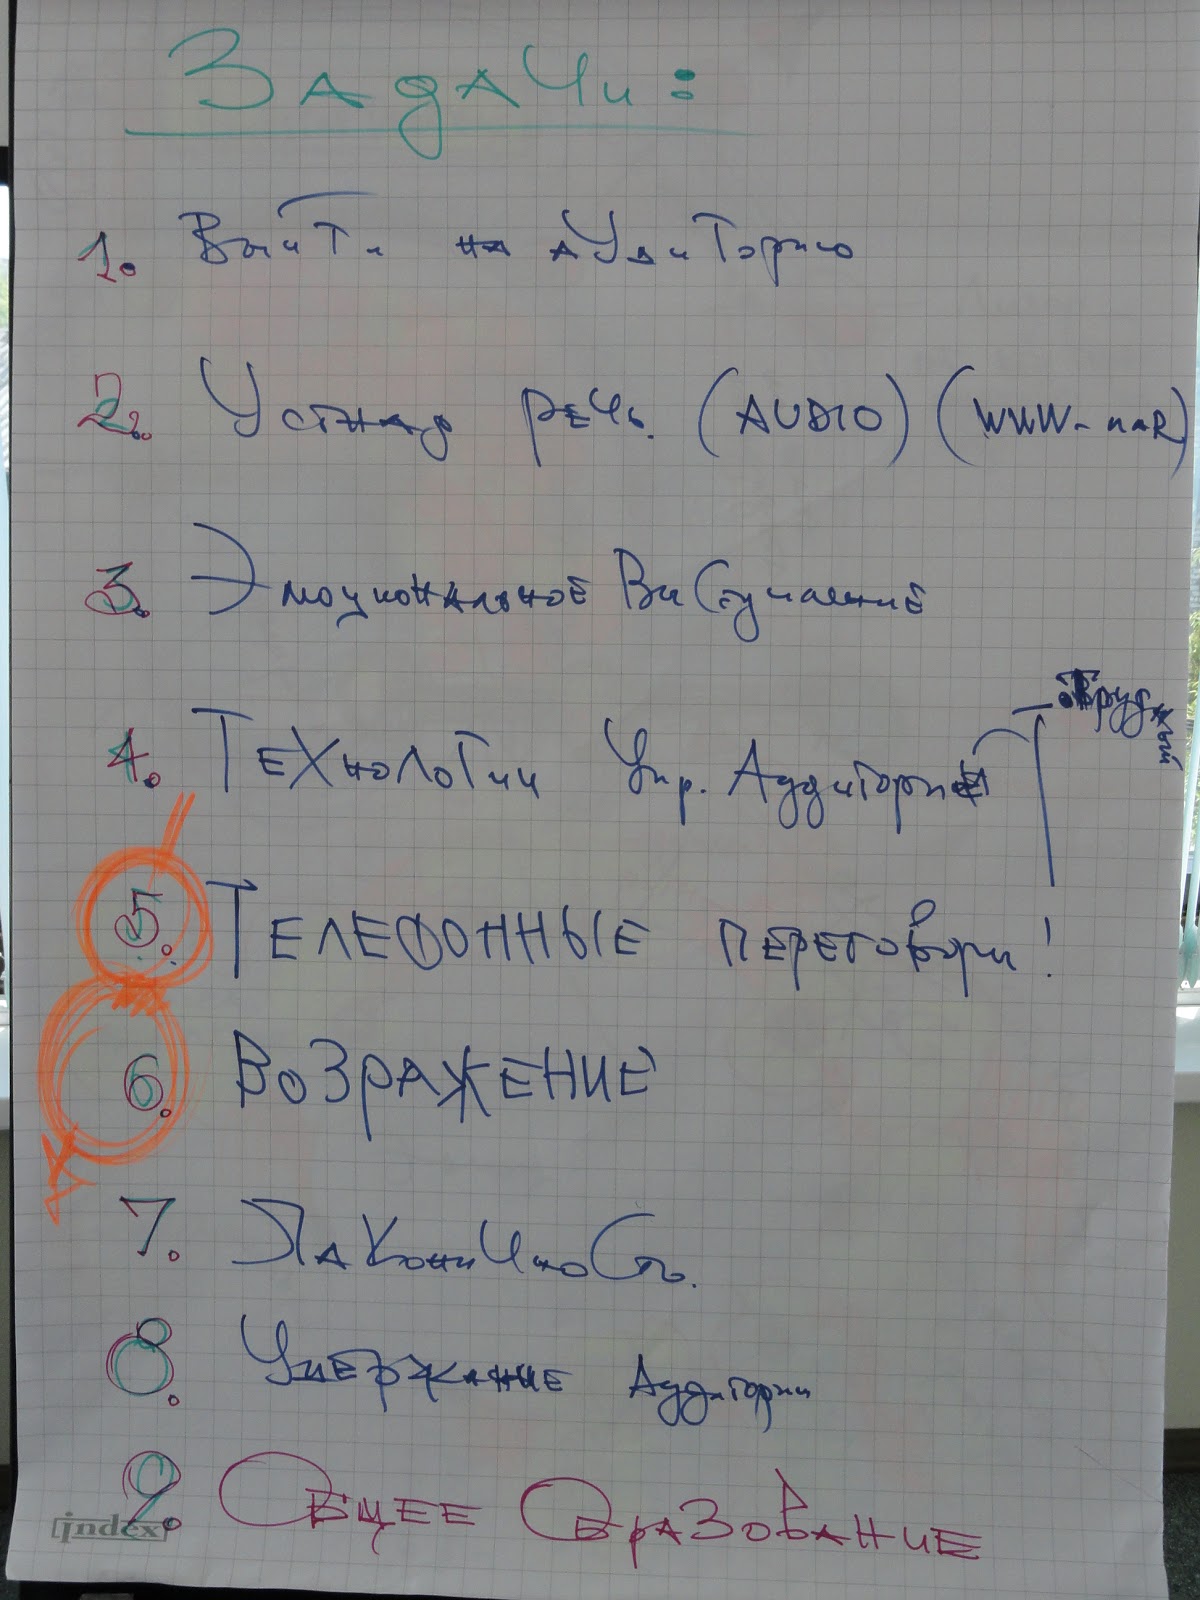 Задачи:
1. Выйти на аудиторию
2. Устная речь. (AUDIO) (WWW-
3. Эмоциональное Выступление
Трудный
4. Технологии Упр. Аудиторией
5. Телефонные переговоры!
6. Возражение
7. Лаконичность.
8. Удержание Аудитории
9. Общее Образование
index